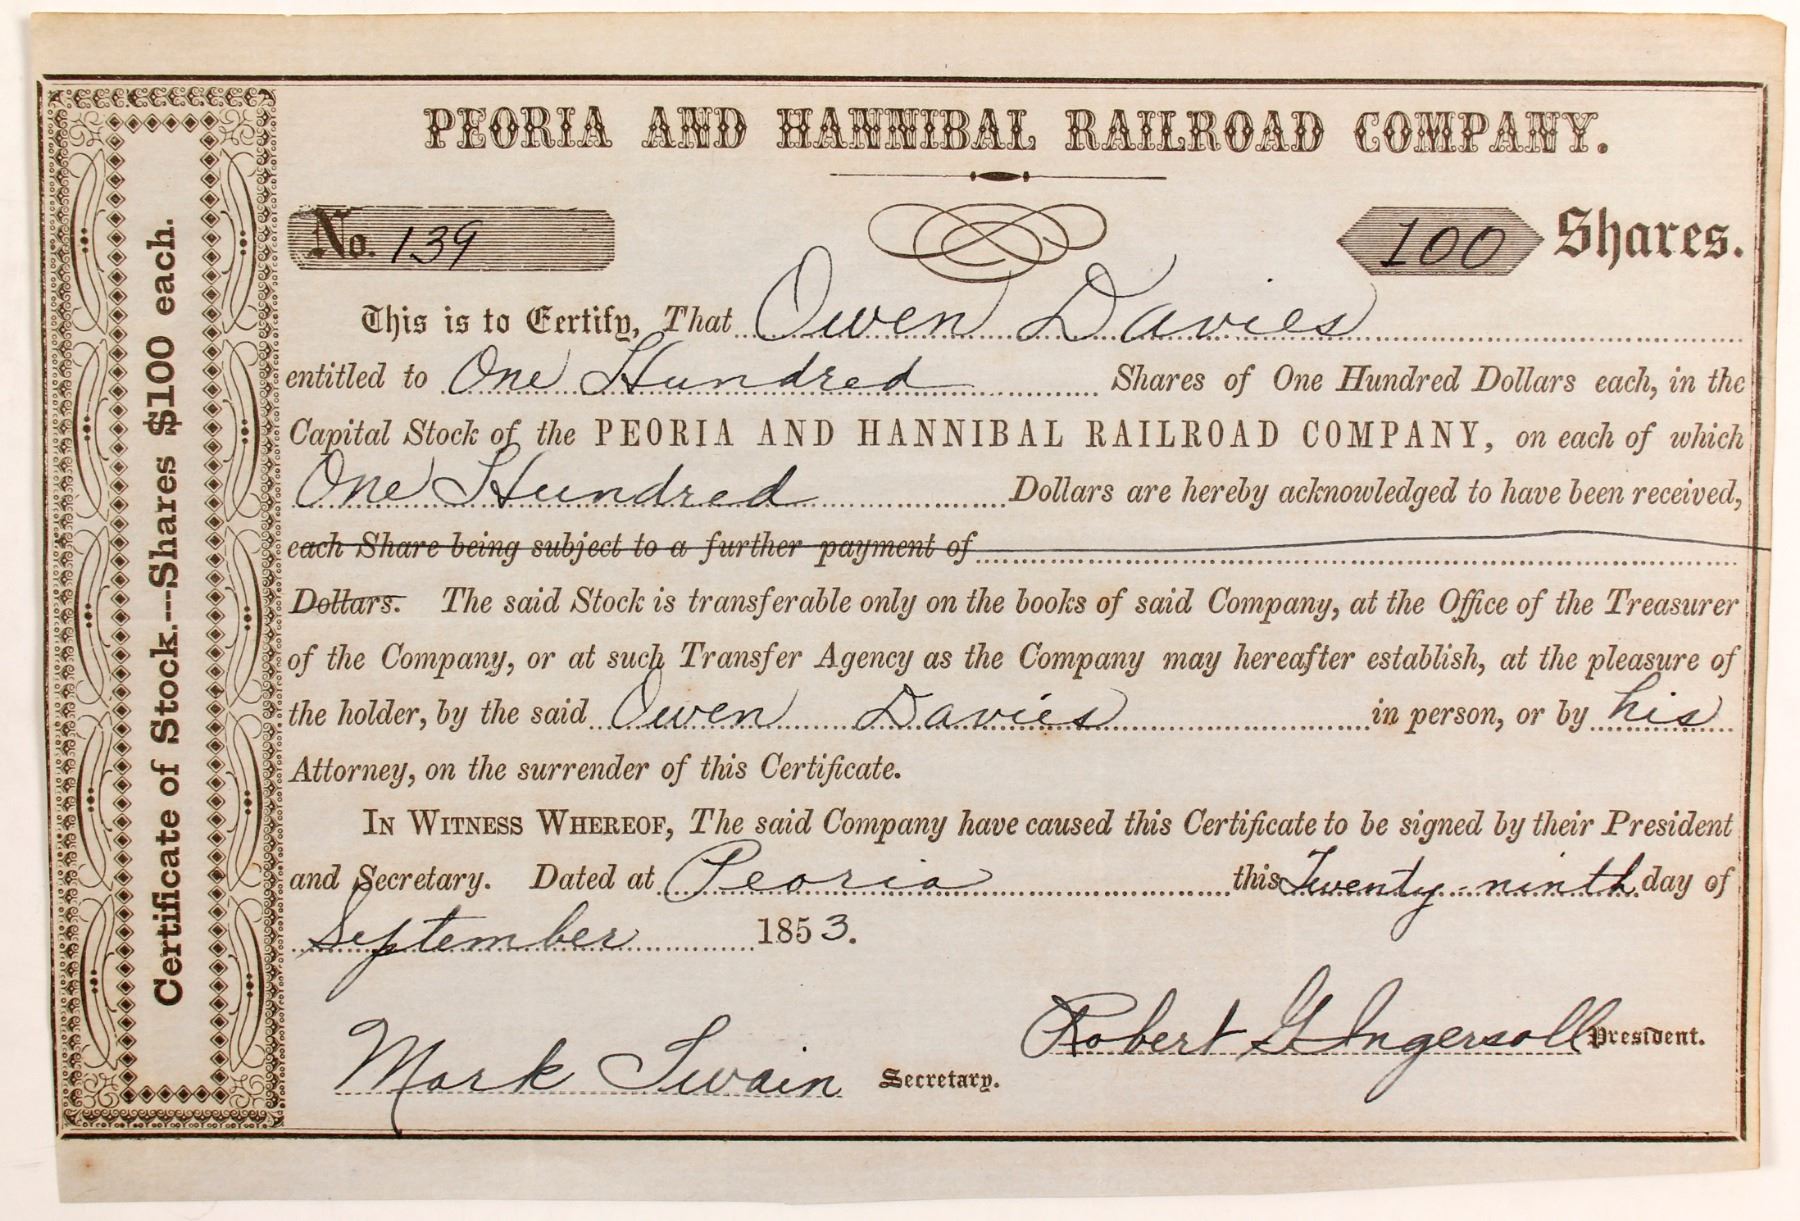 PEORIA AND HANNIBAL RAILROAD COMPANY.
No. 139
100 Shares.
This is to Certify, That Owen Davies
entitled to One Hundred Shares of One Hundred Dollars each, in the
Capital Stock of the PEORIA AND HANNIBAL RAILROAD COMPANY, on each of which
One Hundred Dollars are hereby acknowledged to have been received,
each Share being subject to a further payment of
Dollars. The said Stock is transferable only on the books of said Company, at the Office of the Treasurer
of the Company, or at such Transfer Agency as the Company may hereafter establish, at the pleasure of
the holder, by the said Owen Davies in person, or by his
Attorney, on the surrender of this Certificate.
IN WITNESS WHEREOF, The said Company have caused this Certificate to be signed by their President
and Secretary. Dated at Peoria this Twenty-ninth day of
September 1853.
Robert G Ingersoll President.
Mark Twain Secretary.
Certificate of Stock.---Shares $100 each.